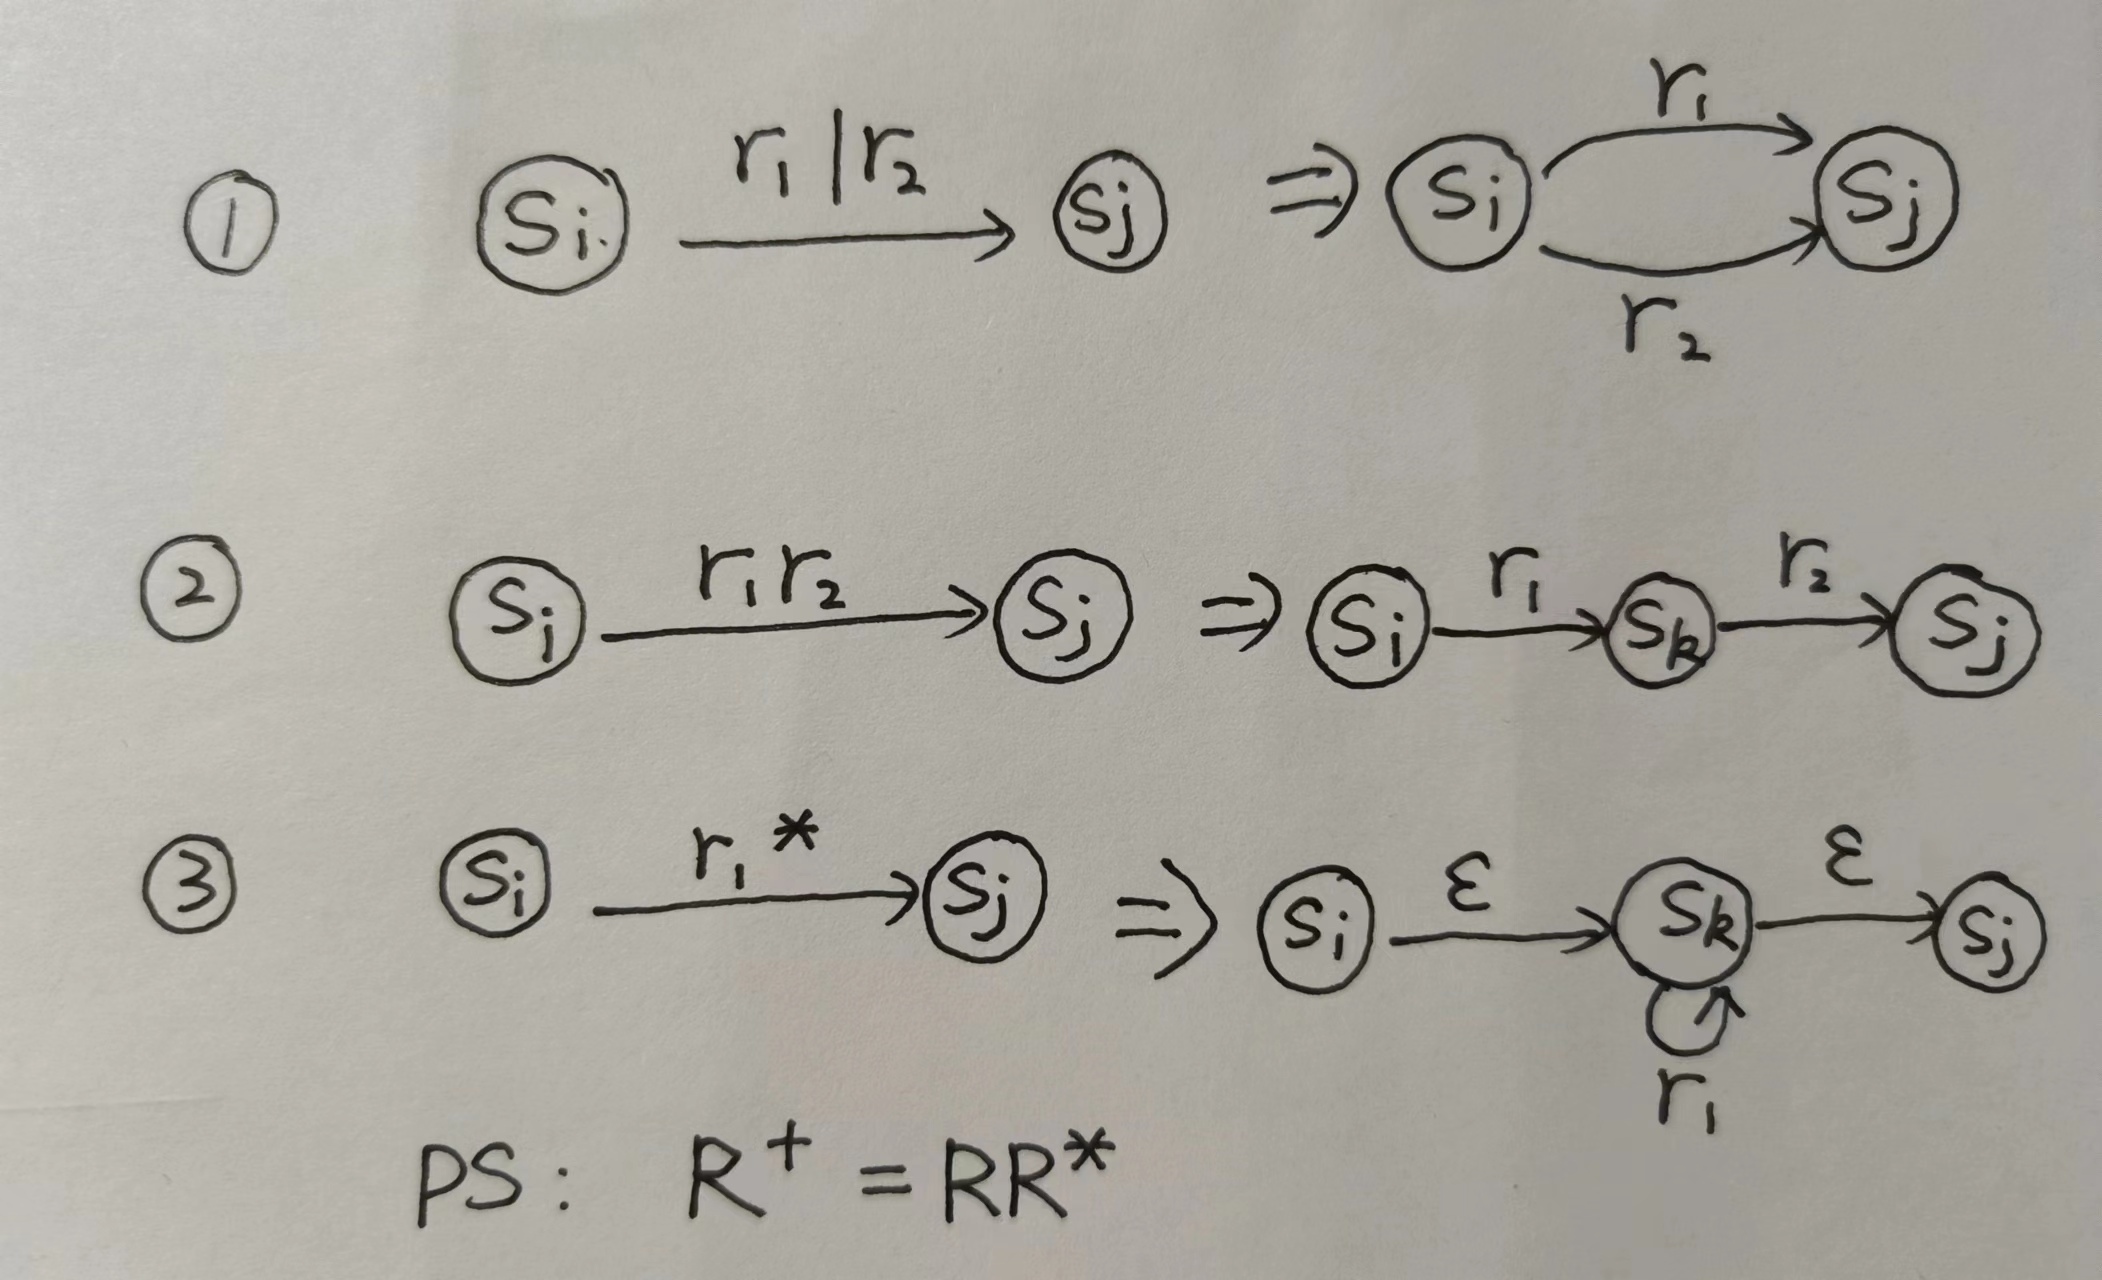 ① Si r1|r2 Sj ⇒ Si r1 r2 Sj
② Si r1r2 Sj ⇒ Si r1 Sk r2 Sj
③ Si r1* Sj ⇒ Si ε Sk ε Sj r1
PS: R⁺ = RR*